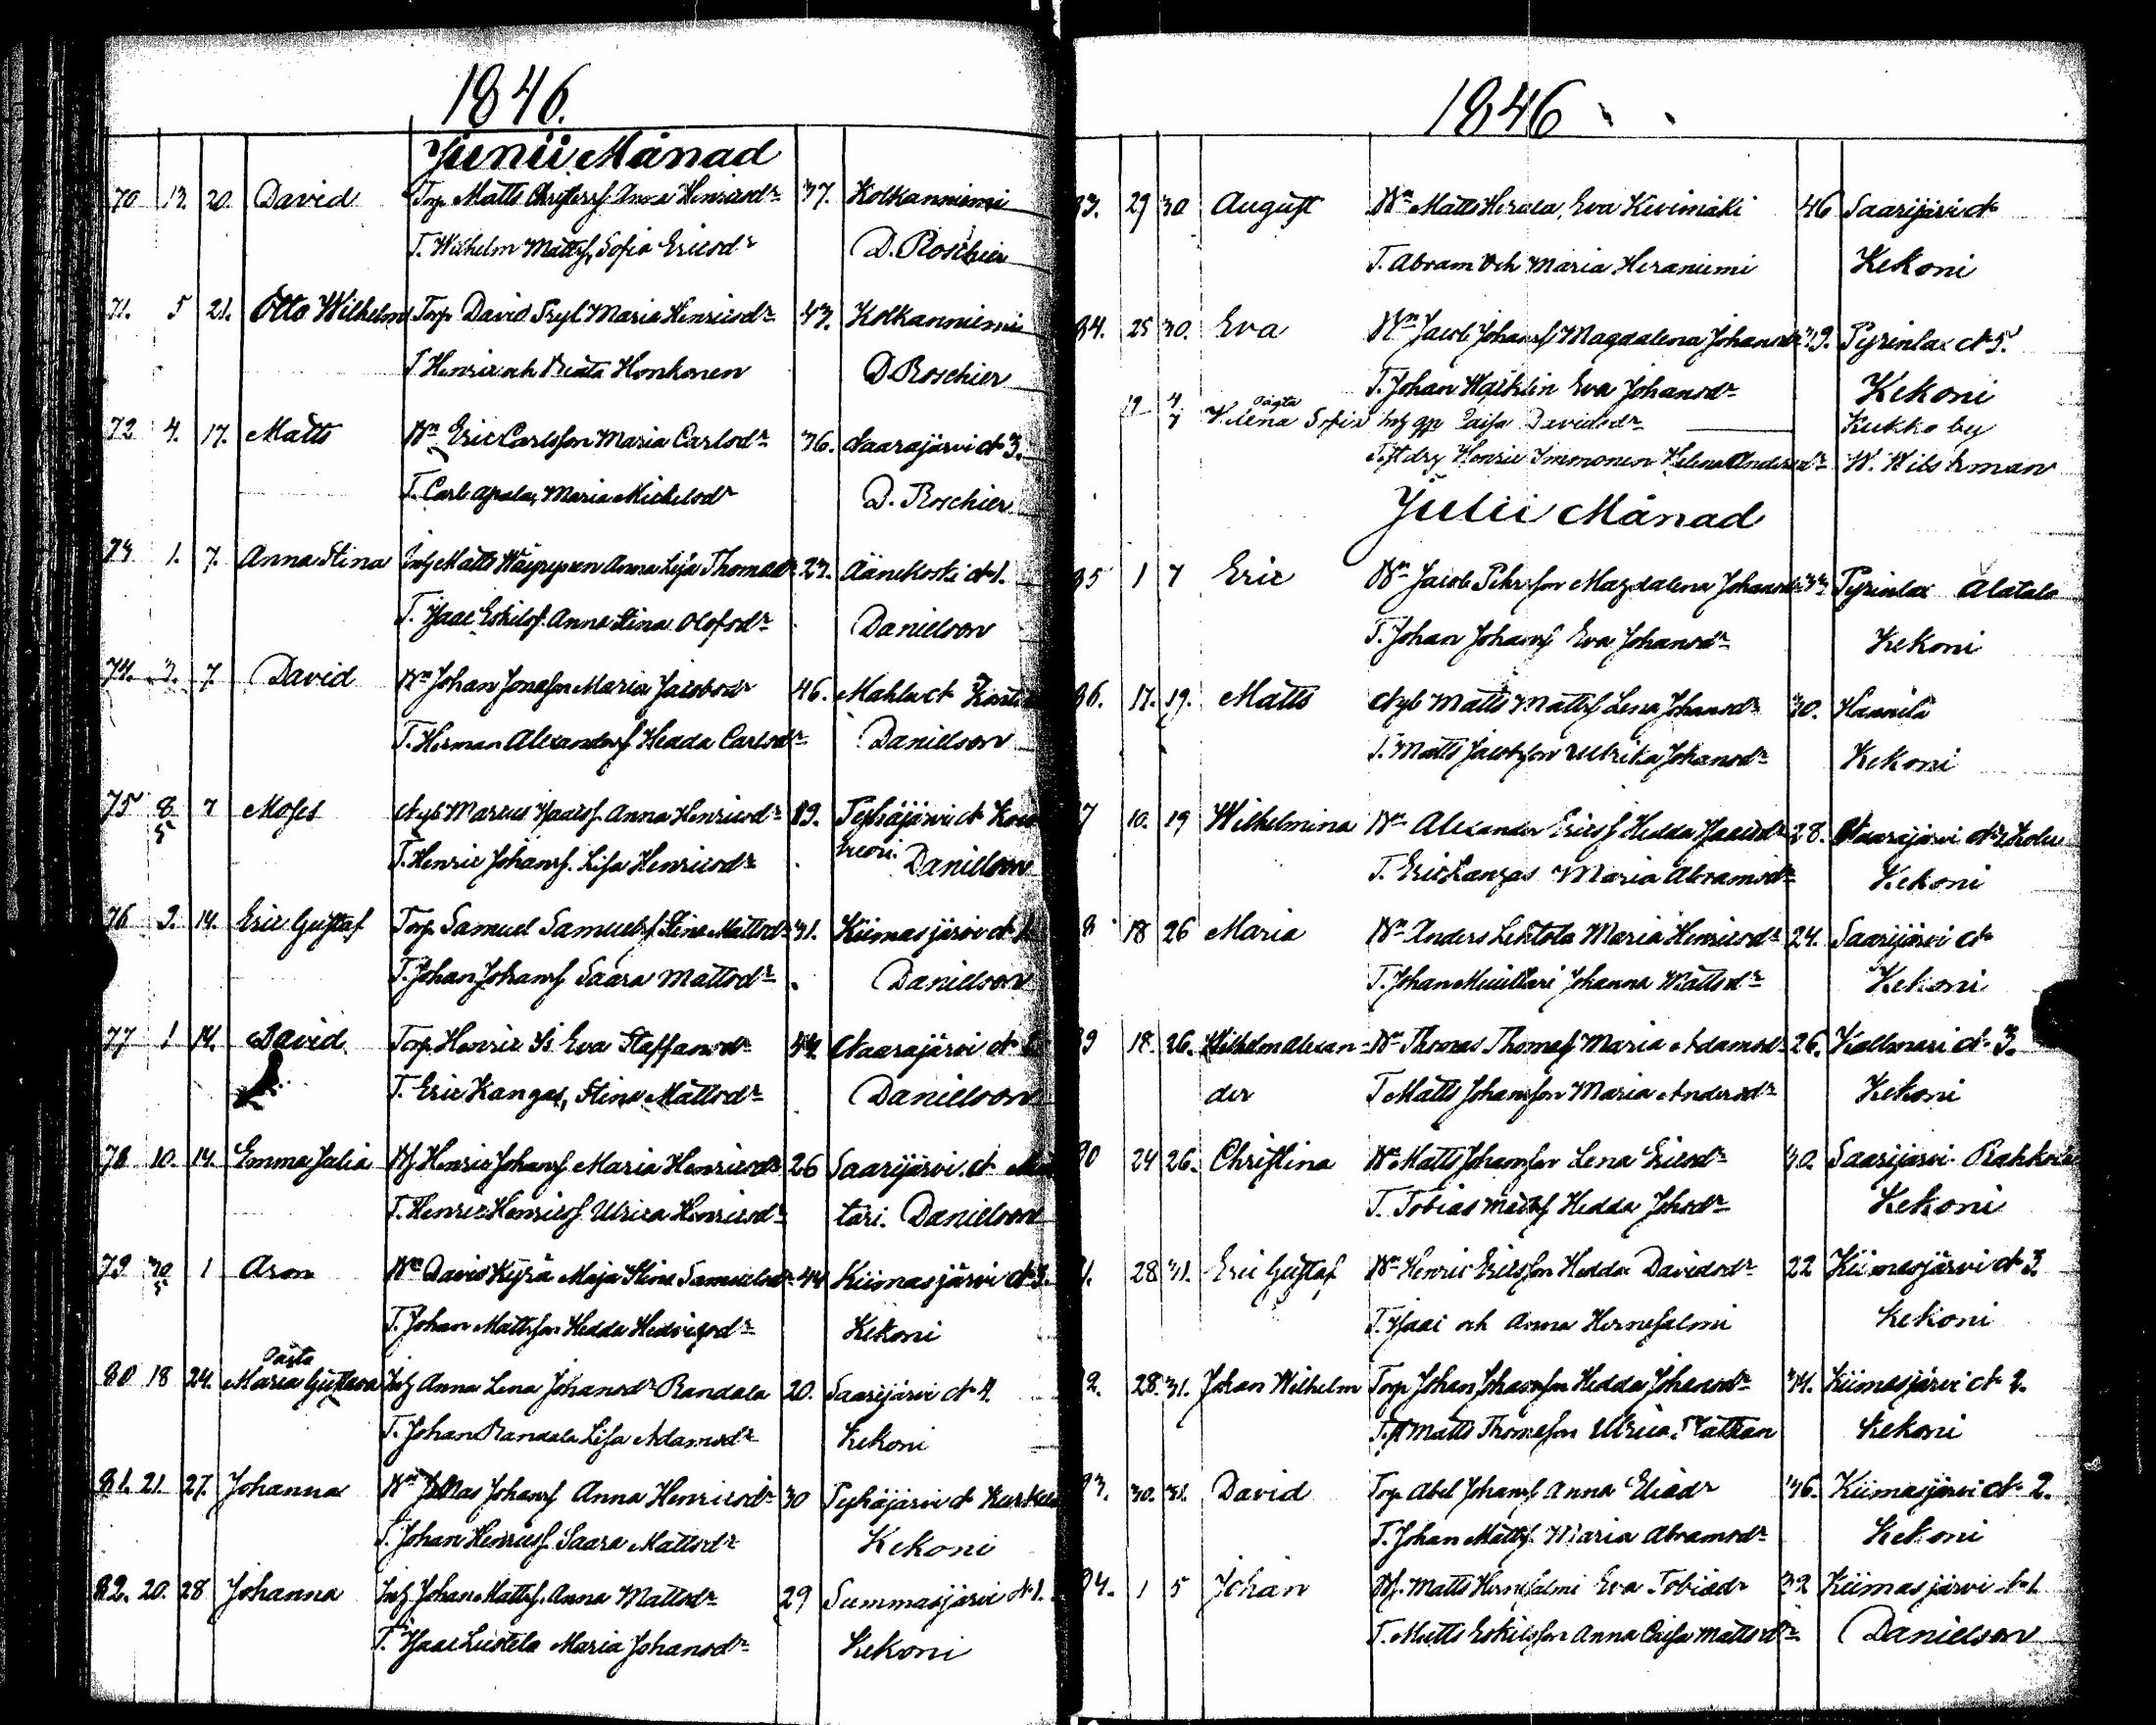 1846.
Junii Månad
70 13. 20. David Torp. Matts Christersf. Anna Henricsdr 37. Kolkanniemi
T. Wilhelm Mattsf. Sofia Ericsdr D. Roschier
71. 5 21. Otto Wilhelm Torp David Fryl Maria Henricsdr 43. Kolkanniemi
T Henric och Beata Honkonen D. Roschier
72 4. 17. Matts Bn Eric Carlsson Maria Carlsdr 36. Naarajärvi No 3.
T. Carl Apala, Maria Michelsdr D. Roschier
73 1. 7. Anna Stina Inh Matts Anna Lisa Thomasdr 23. Äänekoski No 1.
T. Isaac Eskilsf. Anna Stina Olofsdr Danielson
74. 3. 7. David Bn Johan Jonasson Maria Jacobsdr 46. Mahlu No
T. Herman Alexandersf Hedda Carlsdr Danielson
75 8/5 7 Moses Nyb Marcus Isaacsf. Anna Henricsdr 39. Pyhäjärvi No
T. Henric Johansf. Lisa Henricsdr Danielson
76 9. 14. Eric Gustaf Torp Samuel Samuelsf Stina Mattsdr 31. Kiimasjärvi No 1
T. Johan Johansf Saara Mattsdr Danielson
77 1 14. David Torp Henric Is Eva Staffansdr 44. Naarajärvi No
T. Eric Kangas, Stina Mattsdr Danielson
78 10. 14. Emma Julia Bf. Henric Johansf Maria Henricsdr 26 Saarijärvi No
T. Henric Henricsf Ulrica Henricsdr tari. Danielson
79 30/5 1 Aron Bn David Kyrä Maja Stina Samuelsdr 44 Kiimasjärvi No 3.
T. Johan Mattsson Hedda Hedvigsdr Kekoni
oägta
80 18 24. Maria Gustava Inh Anna Lena Johansdr Randala 20. Saarijärvi No 4.
T. Johan Randala Lisa Adamsdr Kekoni
81. 21. 27. Johanna Bn Johansf Anna Henricsdr 30 Pyhäjärvi No
T. Johan Henricsf Saara Mattsdr Kekoni
82. 20. 28 Johanna Inh Johan Mattsf. Anna Mattsdr 29 Summasjärvi No 1.
T. Isaac Maria Johansdr Kekoni
1846
83. 29 30 August Bn Matts Herala, Eva Kivimäki 46 Saarijärvi No
T. Abram och Maria Heraniemi Kekoni
84. 25 30. Eva Bn Jacob Johansf Magdalena Johansdr 39. Pyrinlax No 5.
T. Johan Eva Johansdr Kekoni
oägta
19 4/7 Helena Sofia Inh qp Caisa Davidsdr Kukko by
T. Henric Immonen Helena Andersdr W. Wilskman
Julii Månad
85 1 7 Eric Bn Jacob Pehrsson Magdalena Johansdr 33 Pyrinlax Alatalo
T. Johan Johansf Eva Johansdr Kekoni
86. 17. 19. Matts Nyb Matts Mattsf Lena Johansdr 30. Hannila
T. Matts Jacobsson Ulrika Johansdr Kekoni
87 10. 19 Wilhelmina Bn Alexander Ericsf Hedda Isaacsdr 28. Naarajärvi No
T. Eric Kangas Maria Abramsdr Kekoni
8 18 26 Maria Bn Anders Lehtola Maria Henricsdr 24. Saarijärvi No
T. Johan Johanna Mattsdr Kekoni
89 18. 26. Wilhelm Alexan- Bn Thomas Thomasf Maria Adamsdr 26. Kallmari No 3.
der T Matts Johansson Maria Andersdr Kekoni
90 24 26. Christina Bn Matts Johansson Lena Ericsdr 30. Saarijärvi
T. Tobias Mattsf Hedda Johsdr Kekoni
91. 28 31. Eric Gustaf Bn Henric Ericsson Hedda Davidsdr 22 Kiimasjärvi No 3.
T. Isaac och Anna Hernesalmi Kekoni
92. 28. 31. Johan Wilhelm Torp Johan Johansson Hedda Johansdr 34. Kiimasjärvi No 2.
T. Matts Thomasson Ulrica Kekoni
93. 30. 31. David Torp Abel Johansf Anna Eliasdr 36. Kiimasjärvi No 2.
T. Johan Mattsf. Maria Abramsdr Kekoni
94. 1 5 Johan Bf. Matts Hernesalmi Eva Tobiasdr 32 Kiimasjärvi No 1
T. Matts Eskilsson Anna Caisa Mattsdr Danielson